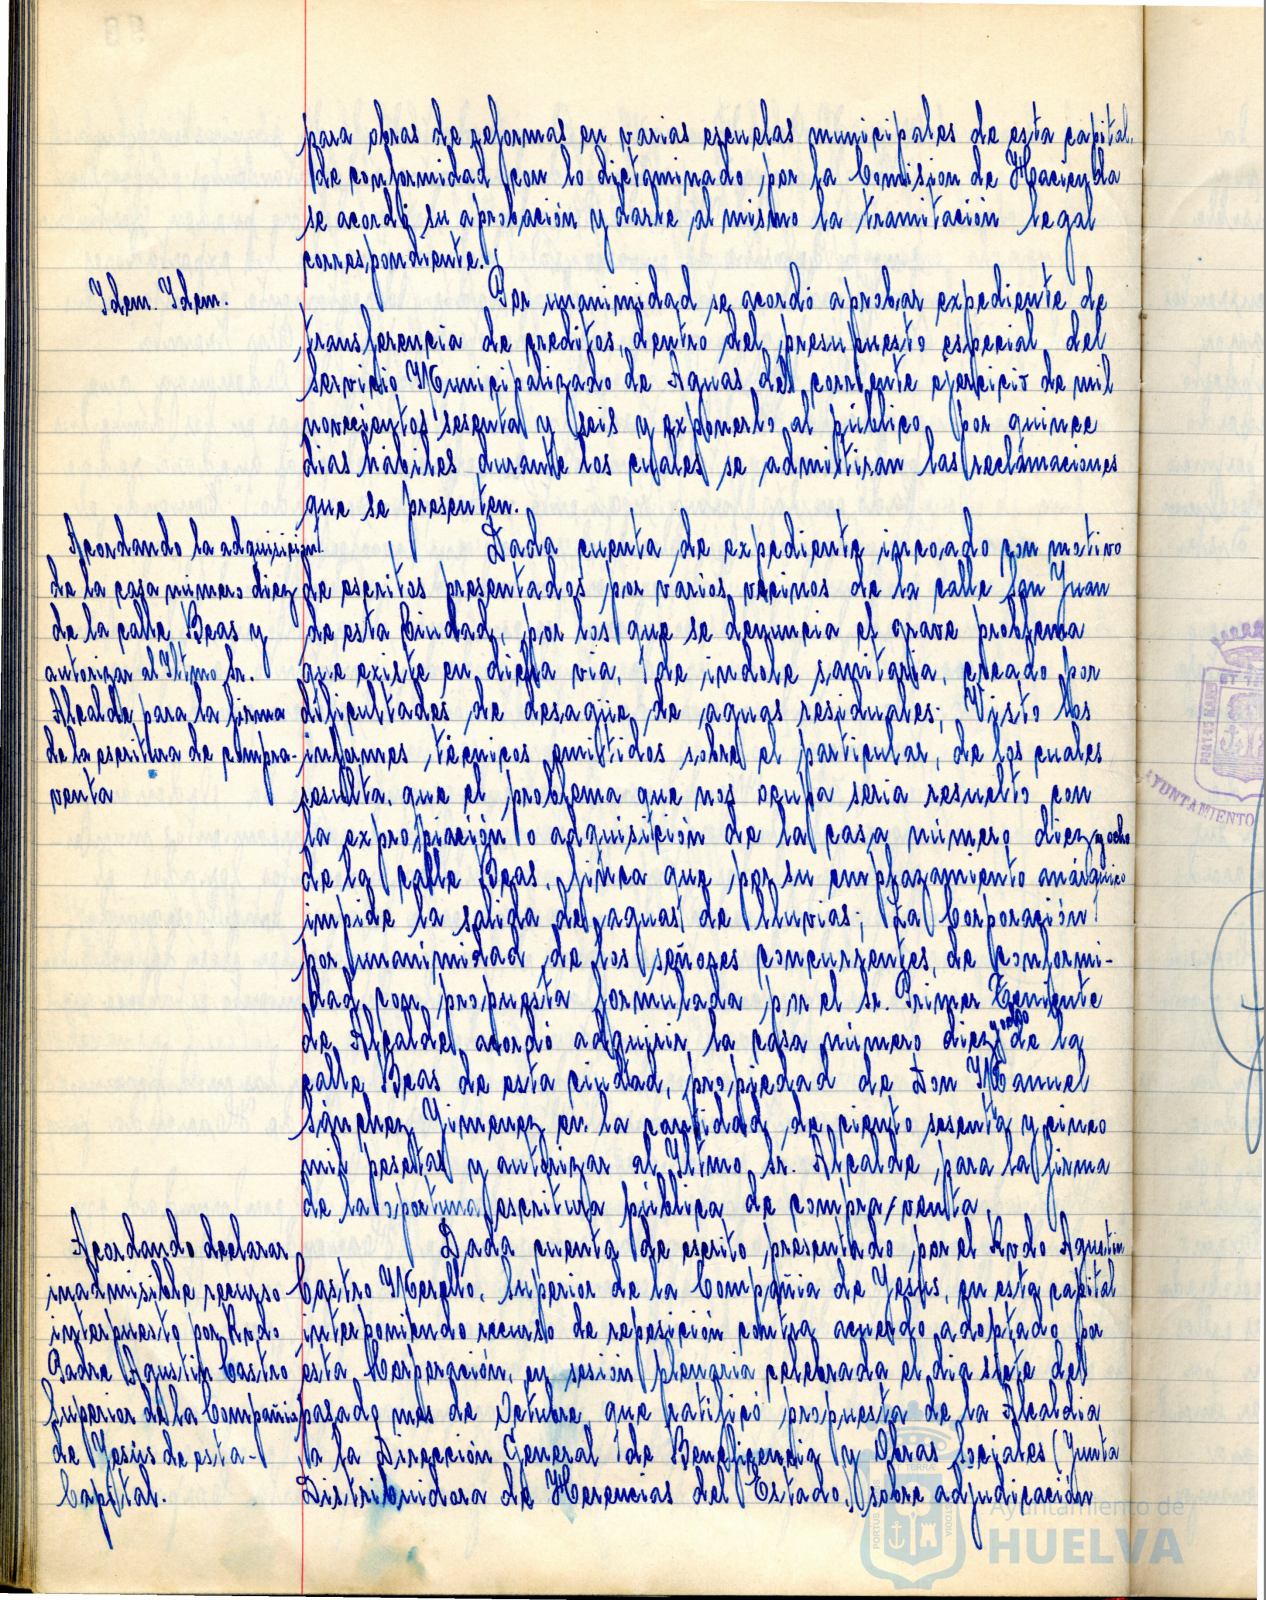 para obras de reformas en varias escuelas municipales de esta capital.
De conformidad con lo dictaminado por la Comision de Hacienda
se acordó su aprobación y darle al mismo la tramitación legal
correspondiente.
Idem. Idem.
Por unanimidad se acordó aprobar expediente de
transferencia de creditos, dentro del presupuesto especial del
Servicio Municipalizado de Aguas del corriente ejercicio de mil
novecientos sesenta y seis y exponerlo al público por quince
dias hábiles durante los cuales se admitiran las reclamaciones
que se presenten.
Acordando la adquisición
de la casa número diez
de la calle Beas y
autorizar al Iltmo Sr.
Alcalde para la firma
de la escritura de compra-
venta
Dada cuenta de expediente incoado con motivo
de escritos presentados por varios vecinos de la calle San Juan
de esta Ciudad, por los que se denuncia el grave problema
que existe en dicha via, de indole sanitaria, creado por
dificultades de desagüe de aguas residuales; Visto los
informes técnicos emitidos sobre el particular, de los cuales
resulta, que el problema que nos ocupa seria resuelto con
la expropiación o adquisición de la casa número diez y ocho
de la calle Beas, finca que por su emplazamiento anárquico
impide la salida de aguas de lluvias; La Corporación
por unanimidad de los señores concurrentes, de conformi-
dad con propuesta formulada por el Sr. Primer Teniente
de Alcalde, acordó adquirir la casa número diez y ocho de la
calle Beas de esta ciudad, propiedad de Don Manuel
Sánchez Yimenez en la cantidad de ciento sesenta y cinco
mil pesetas y autorizar al Iltmo. Sr. Alcalde, para la firma
de la oportuna escritura pública de compra/venta.
Acordando declarar
inadmisible recurso
interpuesto por Rvdo
Padre Agustin Castro
Superior de la Compañia
de Yesús de esta-
Capital.
Dada cuenta de escrito presentado por el Rvdo Agustin
Castro Merello, Superior de la Compañia de Yesus, en esta capital
interponiendo recurso de reposición contra acuerdo adoptado por
esta Corporación, en sesión plenaria celebrada el dia siete del
pasado mes de Octubre, que ratificó propuesta de la Alcaldia
a la Dirección General de Beneficencia y Obras Sociales (Junta
Distribuidora de Herencias del Estado), sobre adjudicación
AYUNTAMIENTO
Ayuntamiento de
HUELVA